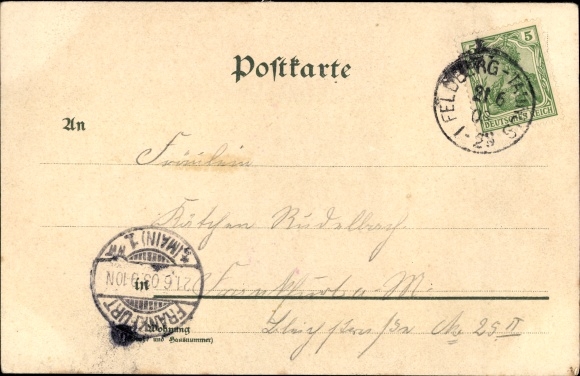 Postkarte
5 5
DEUTSCHES REICH
FELDBERG-TAUNUS
21 6
03
1-2N
An
Fräulein
Kätchen Rudelbach
in Frankfurt a. M.
Wohnung
und Hausnummer)
Bleichstraße No 25 II
FRANKFURT
(MAIN) 1.
21.6.03.9-10N